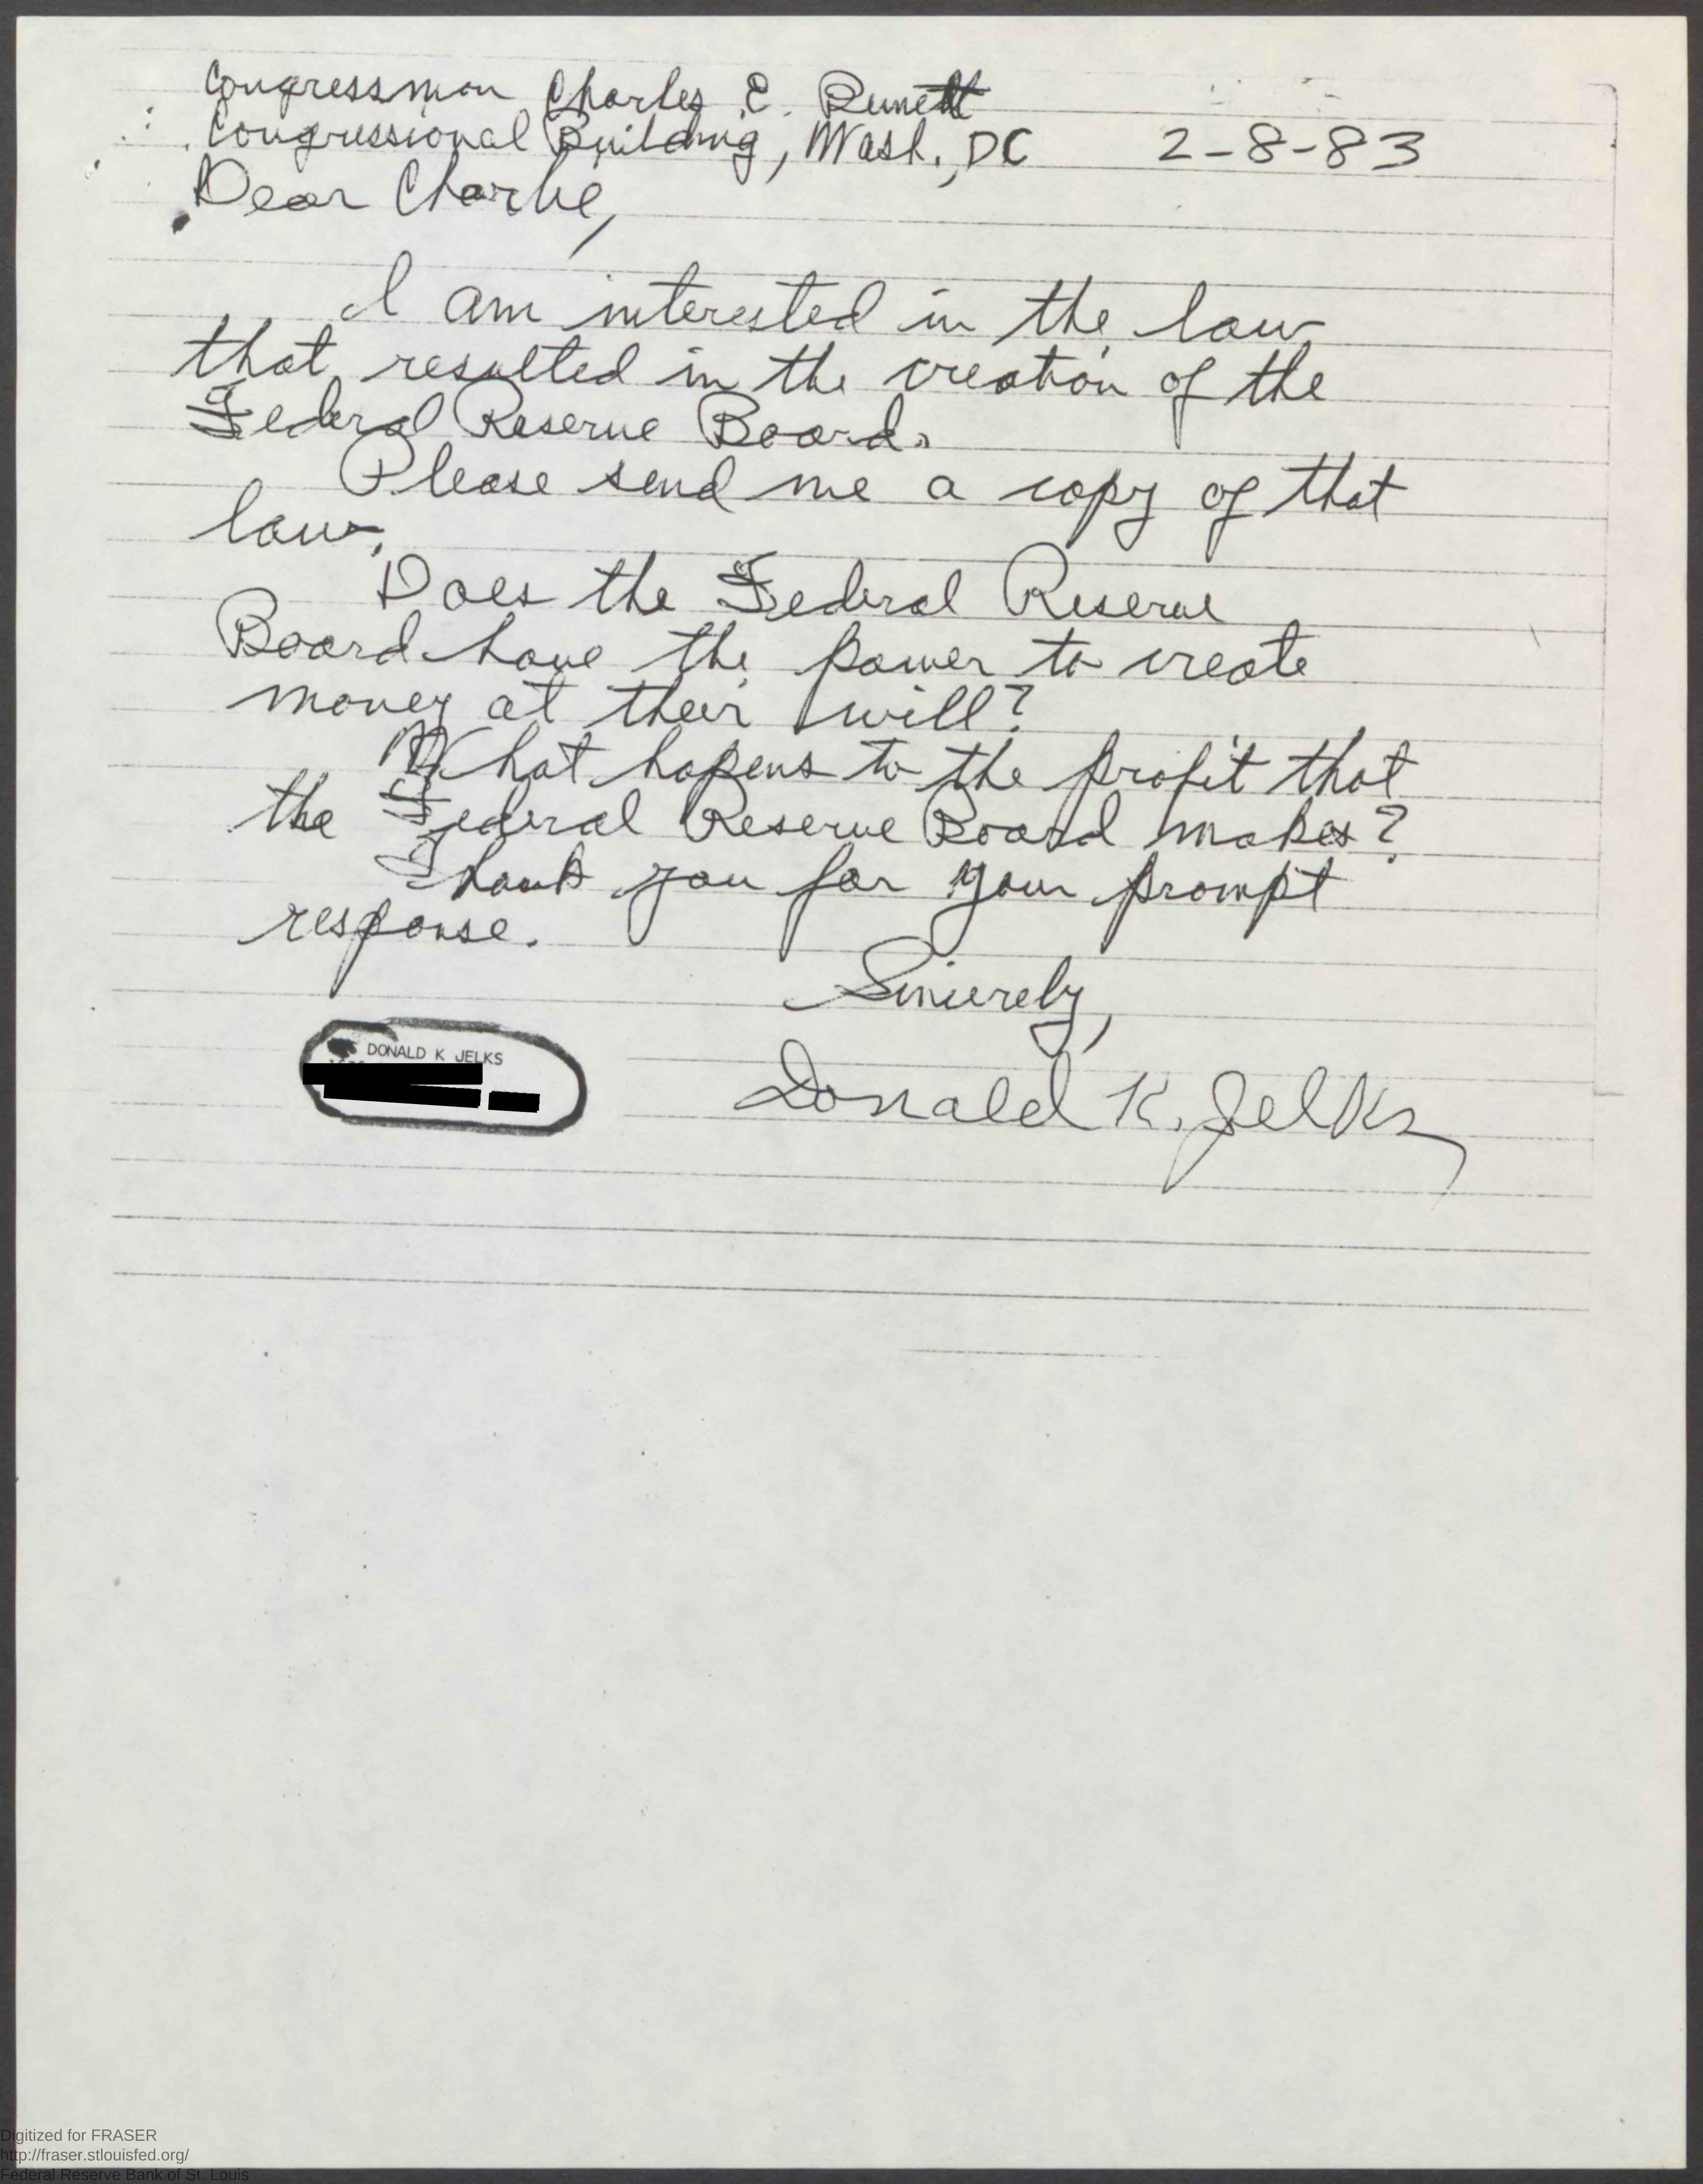 Congressman Charles E. Bennett
Congressional Building, Wash., DC 2-8-83
Dear Charlie,
I am interested in the law
that resulted in the creation of the
Federal Reserve Board.
Please send me a copy of that
law.
Does the Federal Reserve
Board have the power to create
money at their will?
What hapens to the profit that
the Federal Reserve Board makes?
Thank you for your prompt
response.
Sincerely,
Donald K. Jelks
DONALD K JELKS
Digitized for FRASER
http://fraser.stlouisfed.org/
Federal Reserve Bank of St. Louis